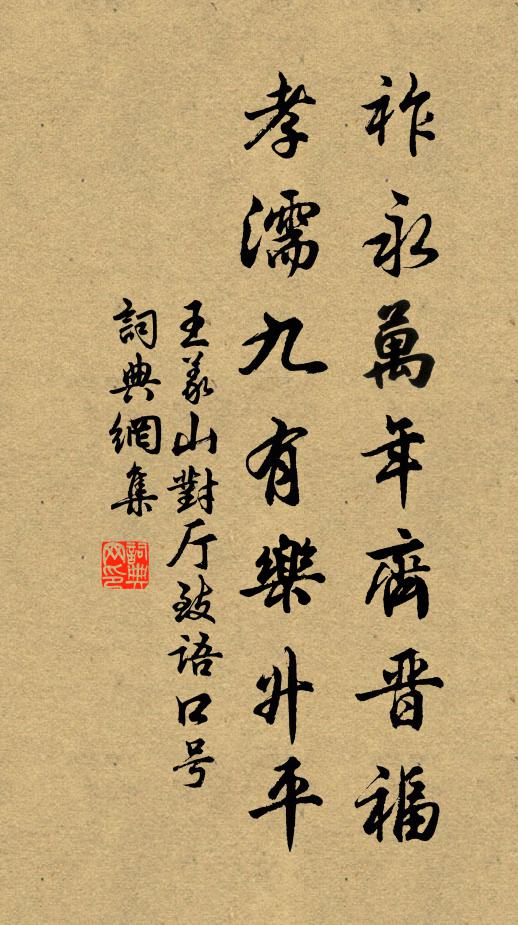 祚永萬年齊晋福
孝濡九有樂升平
王义山對厅致語口号
詞典網集
詞典
网印